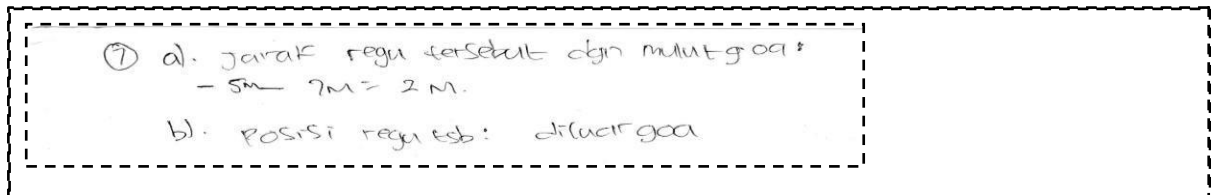 ⑦ a). Jarak regu tersebut dgn mulut goa:
- 5m 7M = 2 M.
b). Posisi regu tsb: diluar goa